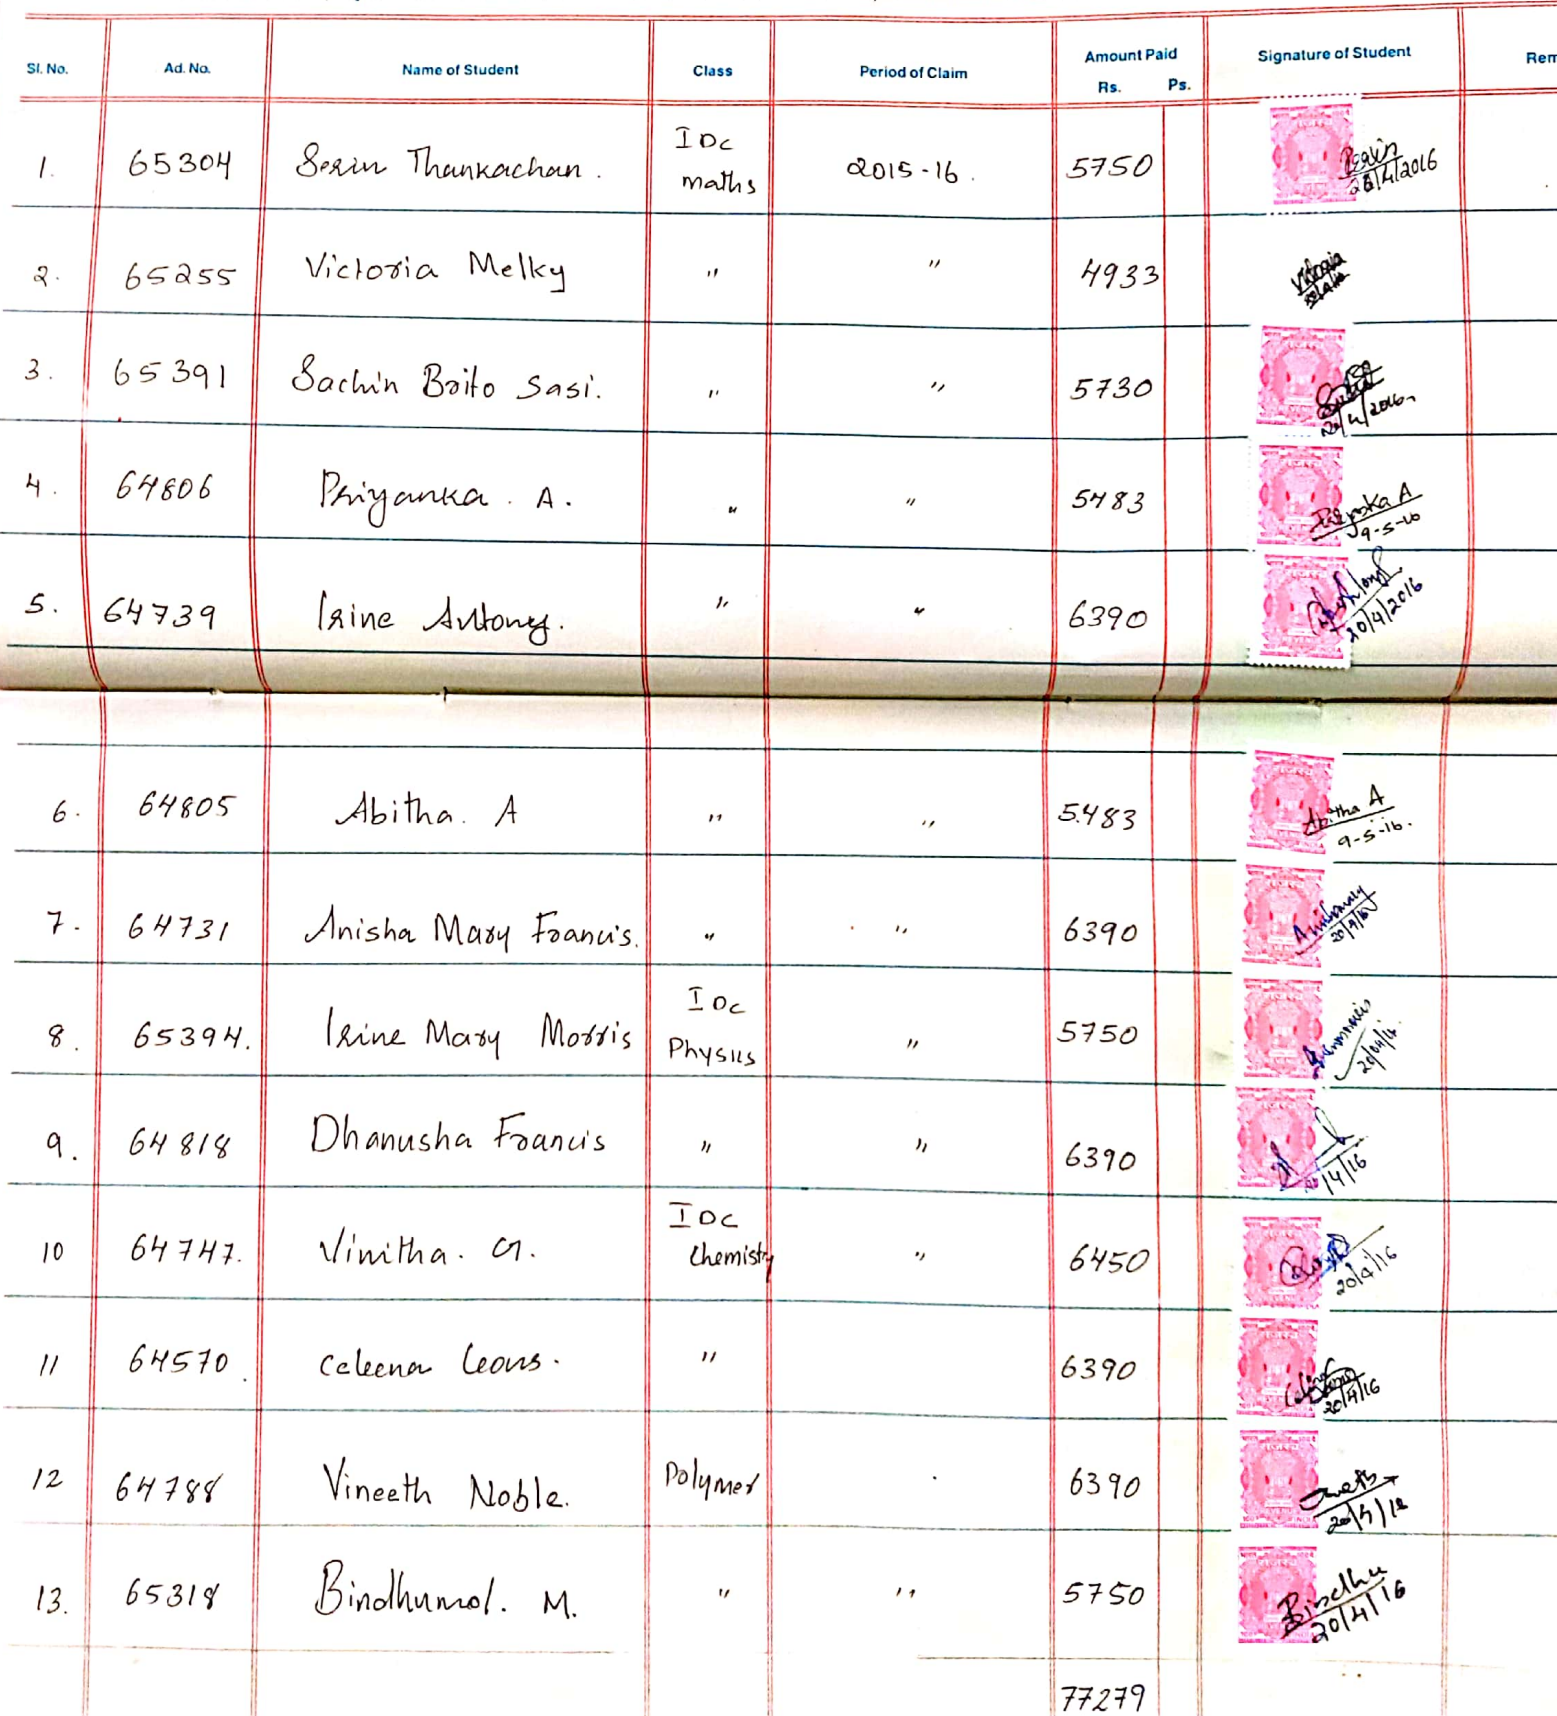 Sl. No. Ad. No. Name of Student Class Period of Claim Amount Paid Rs. Ps. Signature of Student Rem
1. 65304 Serin Thankachan. I DC maths 2015-16. 5750 20/4/2016
2. 65255 Victoria Melky " " 4933 Victoria
3. 65391 Sachin Brito Sasi. " " 5730 20/4/2016
4. 64806 Priyanka. A. " " 5483 Priyanka A 9-5-16
5. 64739 Irine Antony. " " 6390 20/4/2016
6. 64805 Abitha. A " " 5483 Abitha A 9-5-16.
7. 64731 Anisha Mary Francis. " " 6390 20/4/16
8. 65394. Irine Mary Morris I DC Physics " 5750 20/04/16
9. 64818 Dhanusha Francis " " 6390 /4/16
10 64747. Vinitha. G. I DC Chemistry " 6450 20/4/16
11 64570. Celeena Leons. " 6390 20/4/16
12 64788 Vineeth Noble. Polymer 6390
13. 65318 Bindhumol. M. " " 5750 Bindhu 20/4/16
77279